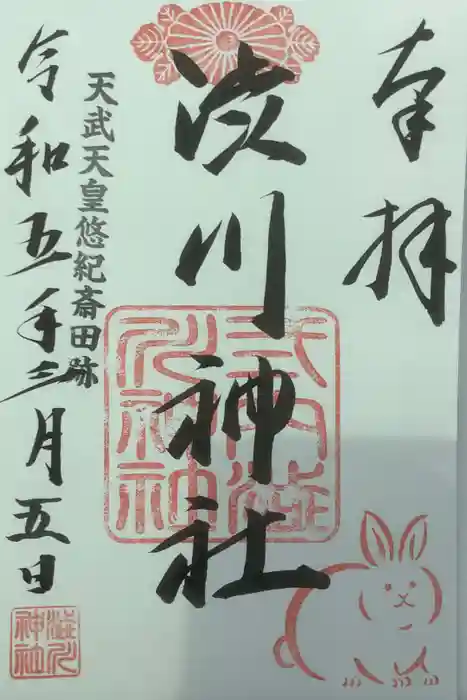 奉拝
渋川神社
天武天皇悠紀斎田跡
令和五年三月五日
式内渋川神社
渋川神社